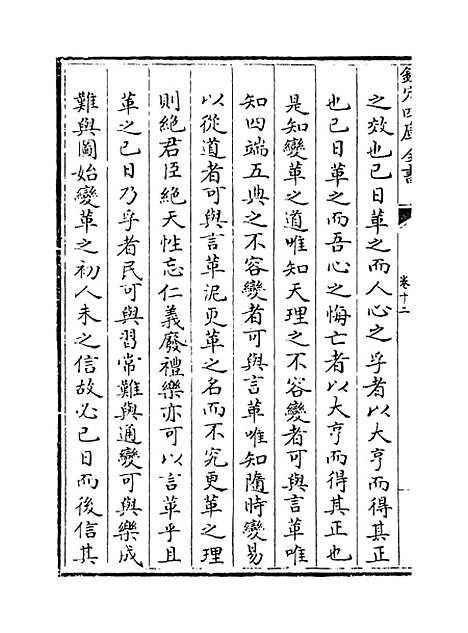 欽定四庫全書
卷十二
之效也已日革之而人心之孚者以大亨而得其正
也已日革之而吾心之悔亡者以大亨而得其正也
是知變革之道唯知天理之不容變者可與言革唯
知四端五典之不容變者可與言革唯知隨時變易
以從道者可與言革泥更革之名而不究更革之理
則絕君臣絕天性忘仁義廢禮樂亦可以言革乎且
革之已日乃孚者民可與習常難與通變可與樂成
難與圖始變革之初人未之信故必已日而後信其